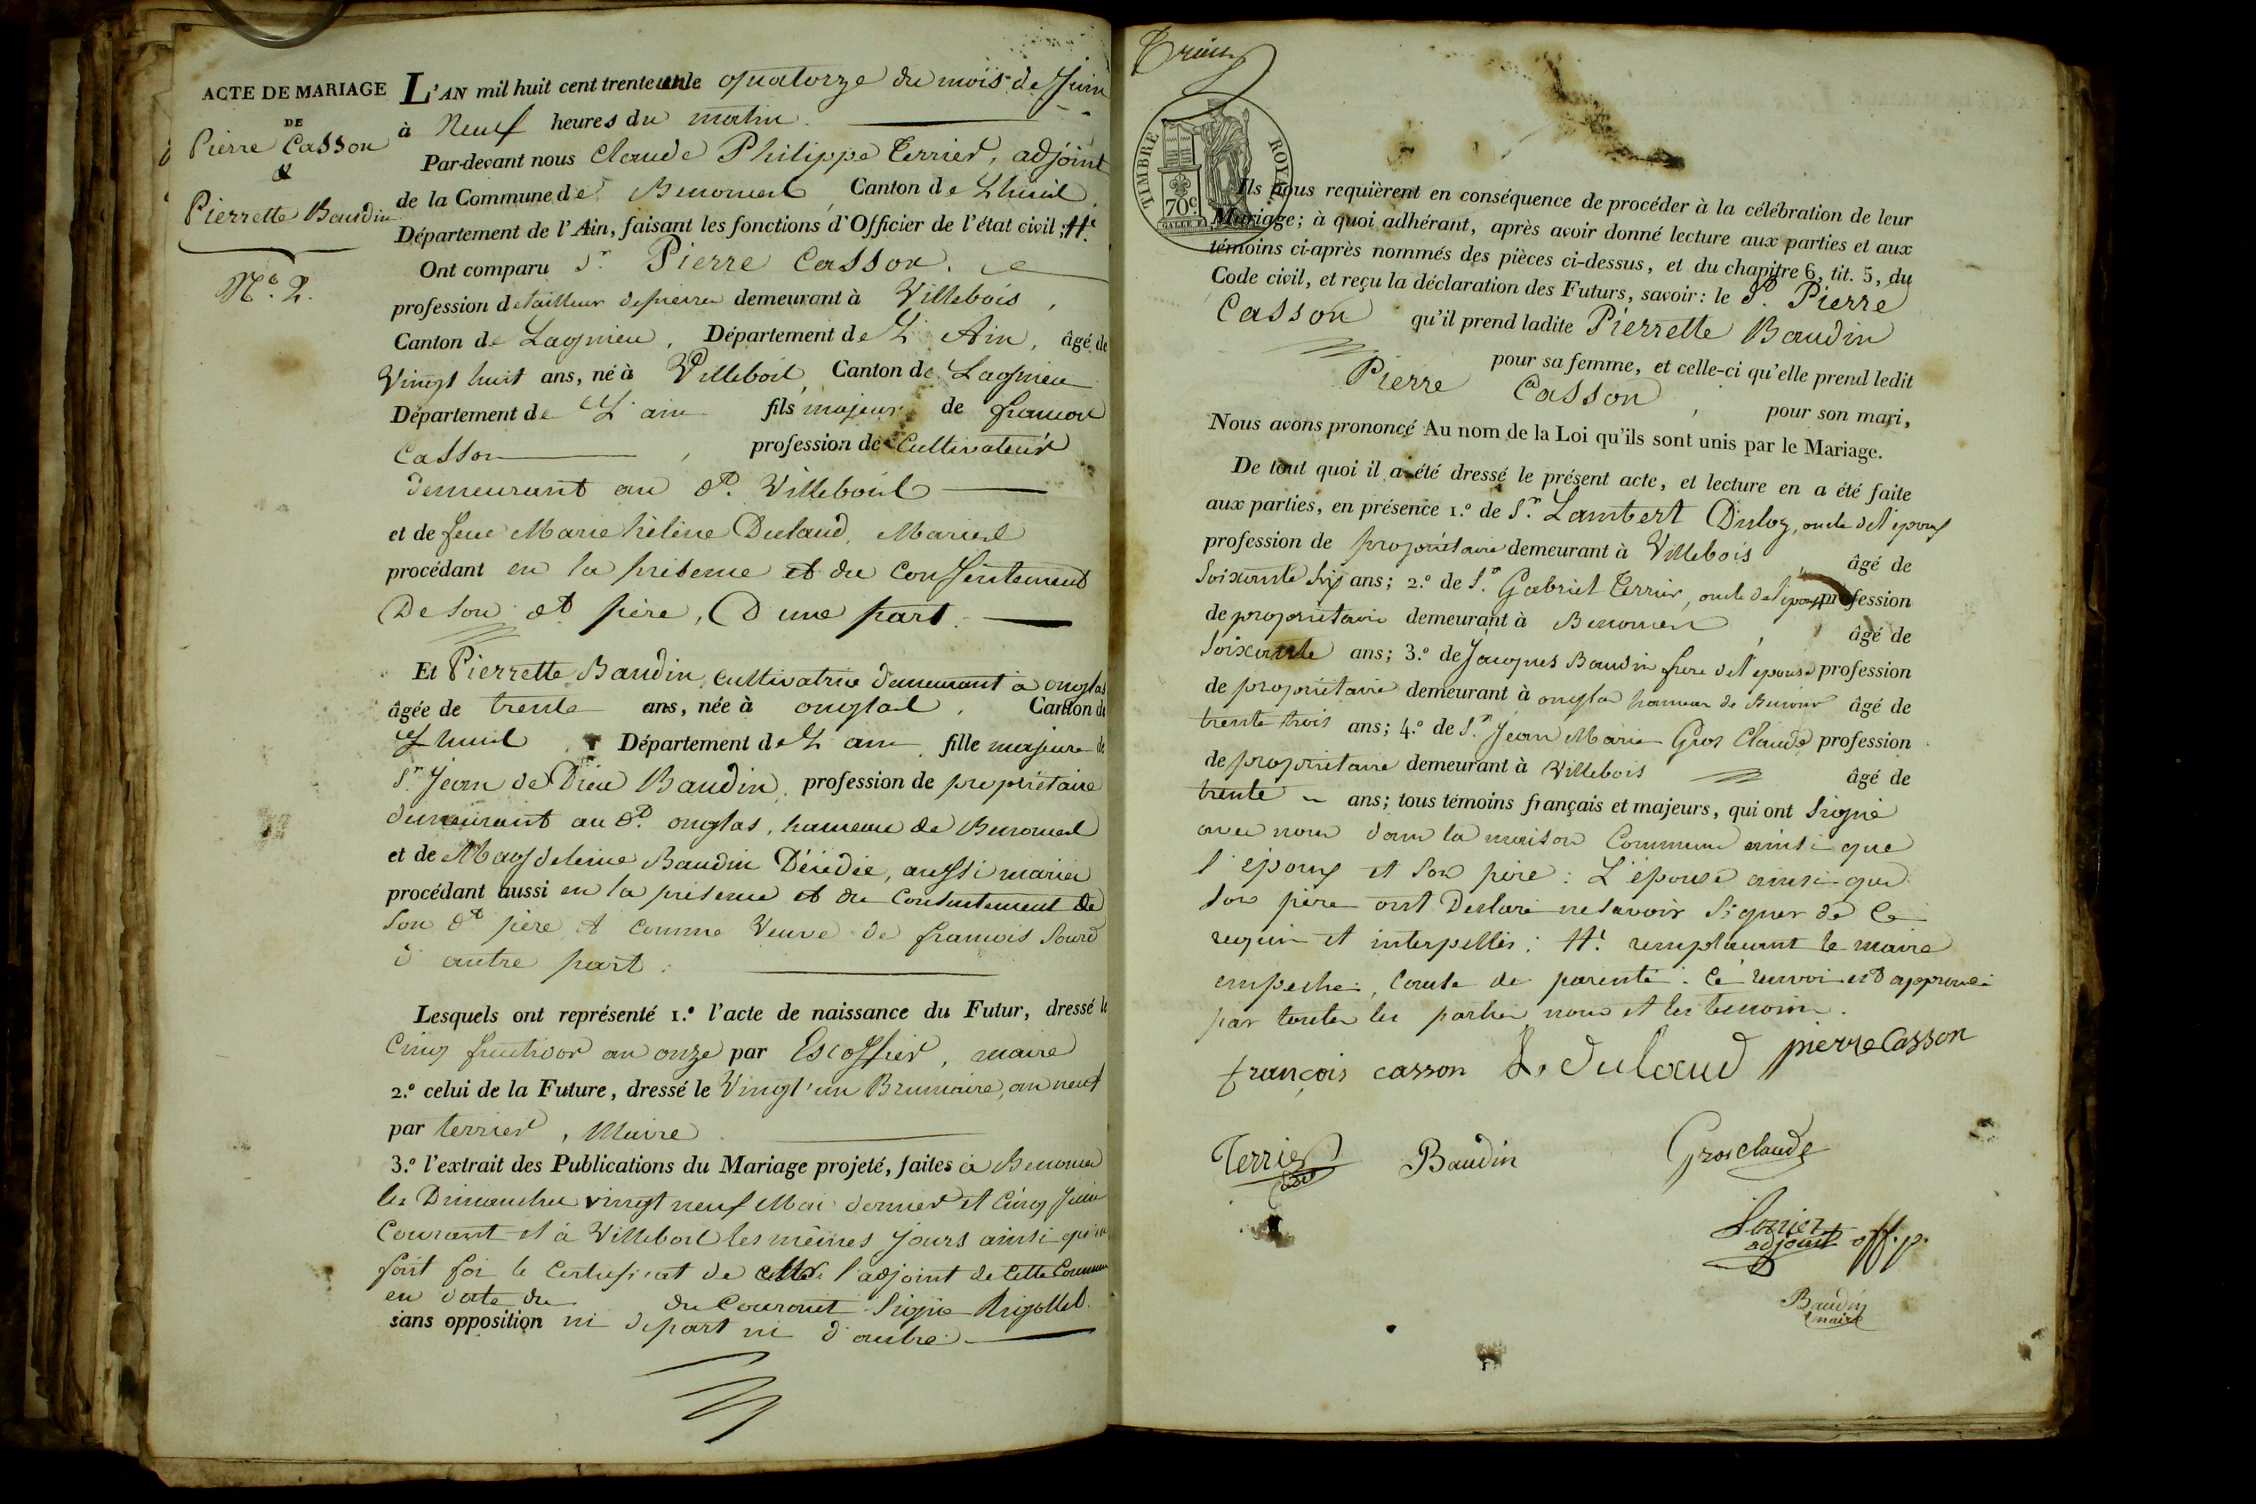 ACTE DE MARIAGE
DE
Pierre Casson
&
Pierrette Baudin
N.º 2.
L'AN mil huit cent trente un le quatorze du mois de Juin
à Neuf heures du matin.
Par-devant nous Claude Philippe Terrier, adjoint
de la Commune de Benonces, Canton de Lhuis,
Département de l'Ain, faisant les fonctions d'Officier de l'état civil;
Ont comparu Sr. Pierre Casson.
profession de tailleur de pierre demeurant à Villebois,
Canton de Lagnieu, Département de L'Ain, âgé de
Vingt huit ans, né à Villebois, Canton de Lagnieu
Département de L'ain fils majeur de francois
Casson, profession de Cultivateur
demeurant au dt. Villebois
et de feue Marie hélène Dulaud, Mariés
procédant en la présence et du Consentement
De Son dt père, D'une part.
Et Pierrette Baudin, cultivatrice demeurant à onglas
âgée de trente ans, née à onglas, Canton de
Lhuis, Département de L'ain fille majeure de
Sr. Jean de Dieu Baudin, profession de propriétaire
demeurant au dt. onglas, hameau de Benonces
et de Magdeleine Baudin Décédée, aussi mariés
procédant aussi en la présence et du Consentement de
Son dt père et comme Veuve de francois Sourd
d'autre part.
Lesquels ont représenté 1.º l'acte de naissance du Futur, dressé le
Cinq fructidor an onze par Escoffier, maire
2.º celui de la Future, dressé le Vingt'un Brumaire, an neuf
par terrier, Maire
3.º l'extrait des Publications du Mariage projeté, faites à Benonces
les Dimanches vingt neuf Mai dernier et Cinq Juin
Courant et à Villebois les mêmes jours ainsi qu'en
fait foi le Certificat de l'adjoint de Cette Commune
en date du du Courant Signé Rigollet.
sans opposition ni de part ni d'autre.
TIMBRE ROYAL
70c.
Ils nous requièrent en conséquence de procéder à la célébration de leur
Mariage; à quoi adhérant, après avoir donné lecture aux parties et aux
témoins ci-après nommés des pièces ci-dessus, et du chapitre 6, tit. 5, du
Code civil, et reçu la déclaration des Futurs, savoir: le Sr. Pierre
Casson qu'il prend ladite Pierrette Baudin
pour sa femme, et celle-ci qu'elle prend ledit
Pierre Casson, pour son mari,
Nous avons prononcé Au nom de la Loi qu'ils sont unis par le Mariage.
De tout quoi il a été dressé le présent acte, et lecture en a été faite
aux parties, en présence 1.º de Sr. Lambert, oncle de l'époux
profession de propriétaire demeurant à Villebois âgé de
Soixante Six ans; 2.º de Sr. Gabriel Terrier, oncle de l'épouse profession
de propriétaire demeurant à Benonces, âgé de
Soixante ans; 3.º de Jacques Baudin frere de l'épouse profession
de propriétaire demeurant à onglas hameau de Benonces âgé de
trente trois ans; 4.º de Sr. Jean Marie Gros Claude profession
de propriétaire demeurant à Villebois âgé de
trente ans; tous témoins français et majeurs, qui ont Signé
avec nous dans la maison Commune ainsi que
l'époux et Son père: L'épouse ainsi que
Son père ont Déclaré ne Savoir Signer de Ce
requis et interpellés: remplaçant le maire
empeché, Cause de parenté. Ce renvoi est approuvé
par toutes les parties nous et les témoins.
françois casson L. dulaud pierre Casson
Terrier Baudin Grosclaude
Terrier
adjoint off. p.
Baudin
maire